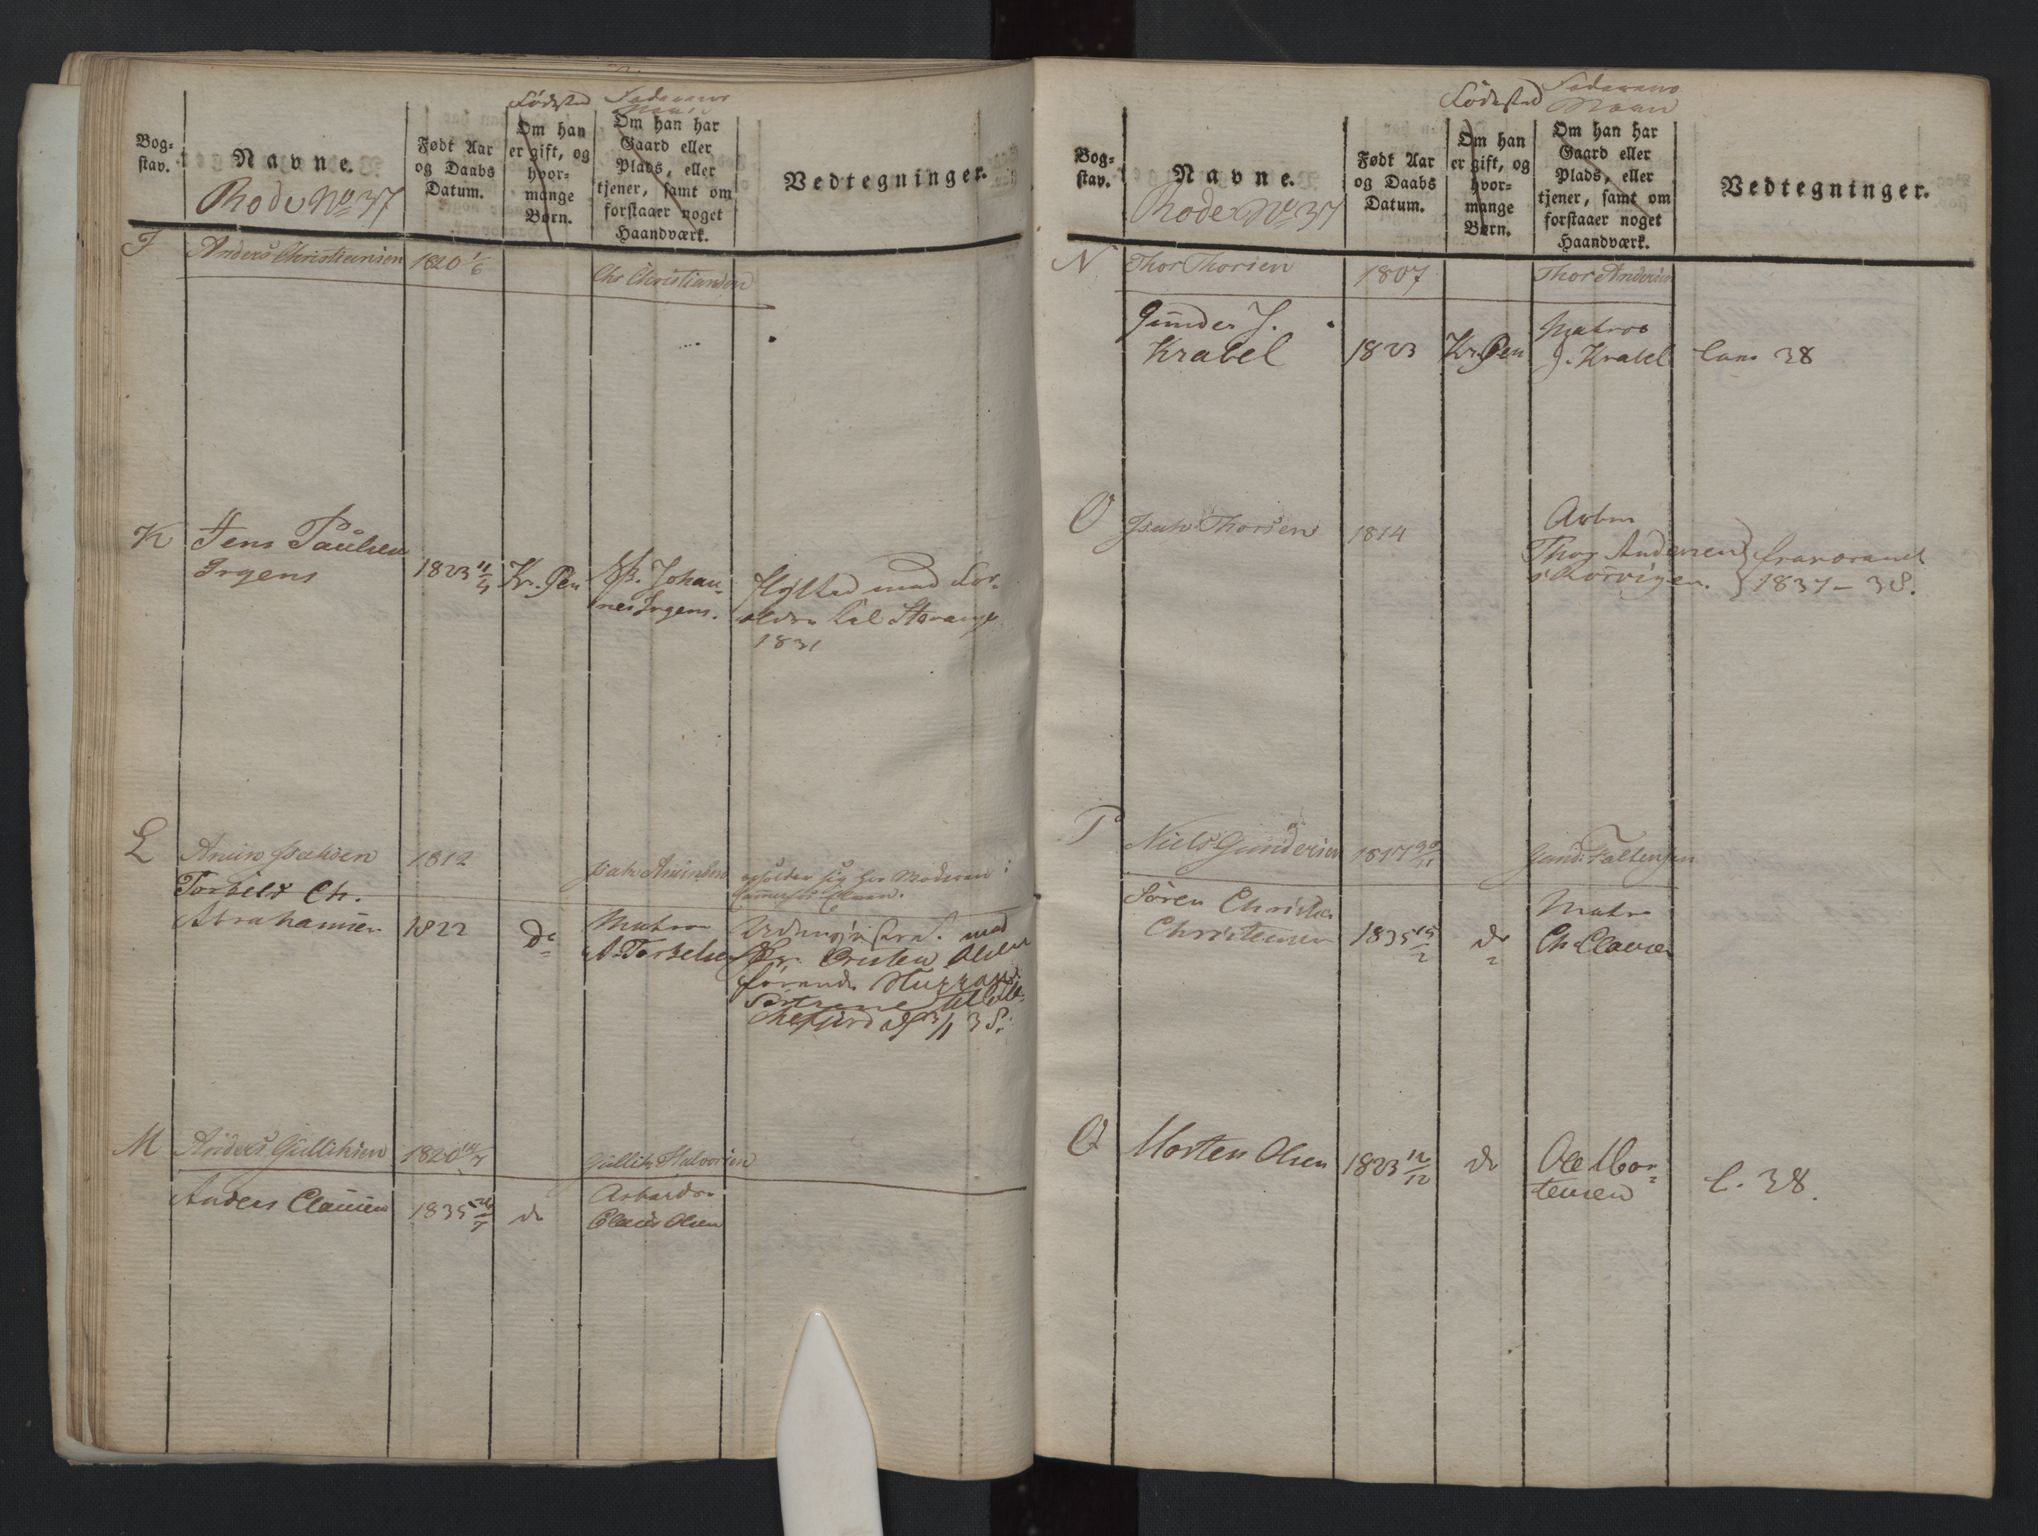 Bog-
stav.
Navne.
Rode No 37
Født Aar
og Daabs
Datum.
Fødested
Om han
er gift, og
hvor-
mange
Børn.
Faderens
Navn
Om han har
Gaard eller
Plads, eller
tjener, samt om
forstaaer noget
Haandværk.
Vedtegninger.
I Anders Christiansen 1820 1/6 Chr Christiansen
K Jens Paulsen
Irgens 1823 11/4 Kr. Sen Johan-
nes Irgens. Flÿtted med For-
ældre til Stavanger
1831
L Anun Isaksen 1812 Isak Anunsen opholder sig hos Moderen i
Torkild Ch.
Abrahamsen 1822 Do Matros
A. Torkelsen med
førende
13/11 38.
M Anders Gulliksen 1820 Gullik Halvorsen
Anders Clausen 1835 do Arbeids.
Claus Olsen
Bog-
stav.
Navne.
Rode No 37
Født Aar
og Daabs
Datum.
Fødested
Om han
er gift, og
hvor-
mange
Børn.
Faderens
Navn
Om han har
Gaard eller
Plads, eller
tjener, samt om
forstaaer noget
Haandværk.
Vedtegninger.
N Thor Thorsen 1807 Thor Andersen
Gunder J.
Krabel 1823 Kr. Sen Matros
J. Krabel 38
O Isak Thorsen 1814 Arbm
Thor Andersen fraværende
1837 – 38.
P Niels Gundersen 1817 Gund: Faltensen
Søren Christen
Christensen 1835 15/2 do Matr
Ch. Clausen
Q Morten Olsen 1823 12/12 do Ole Mor-
tensen l. 38.